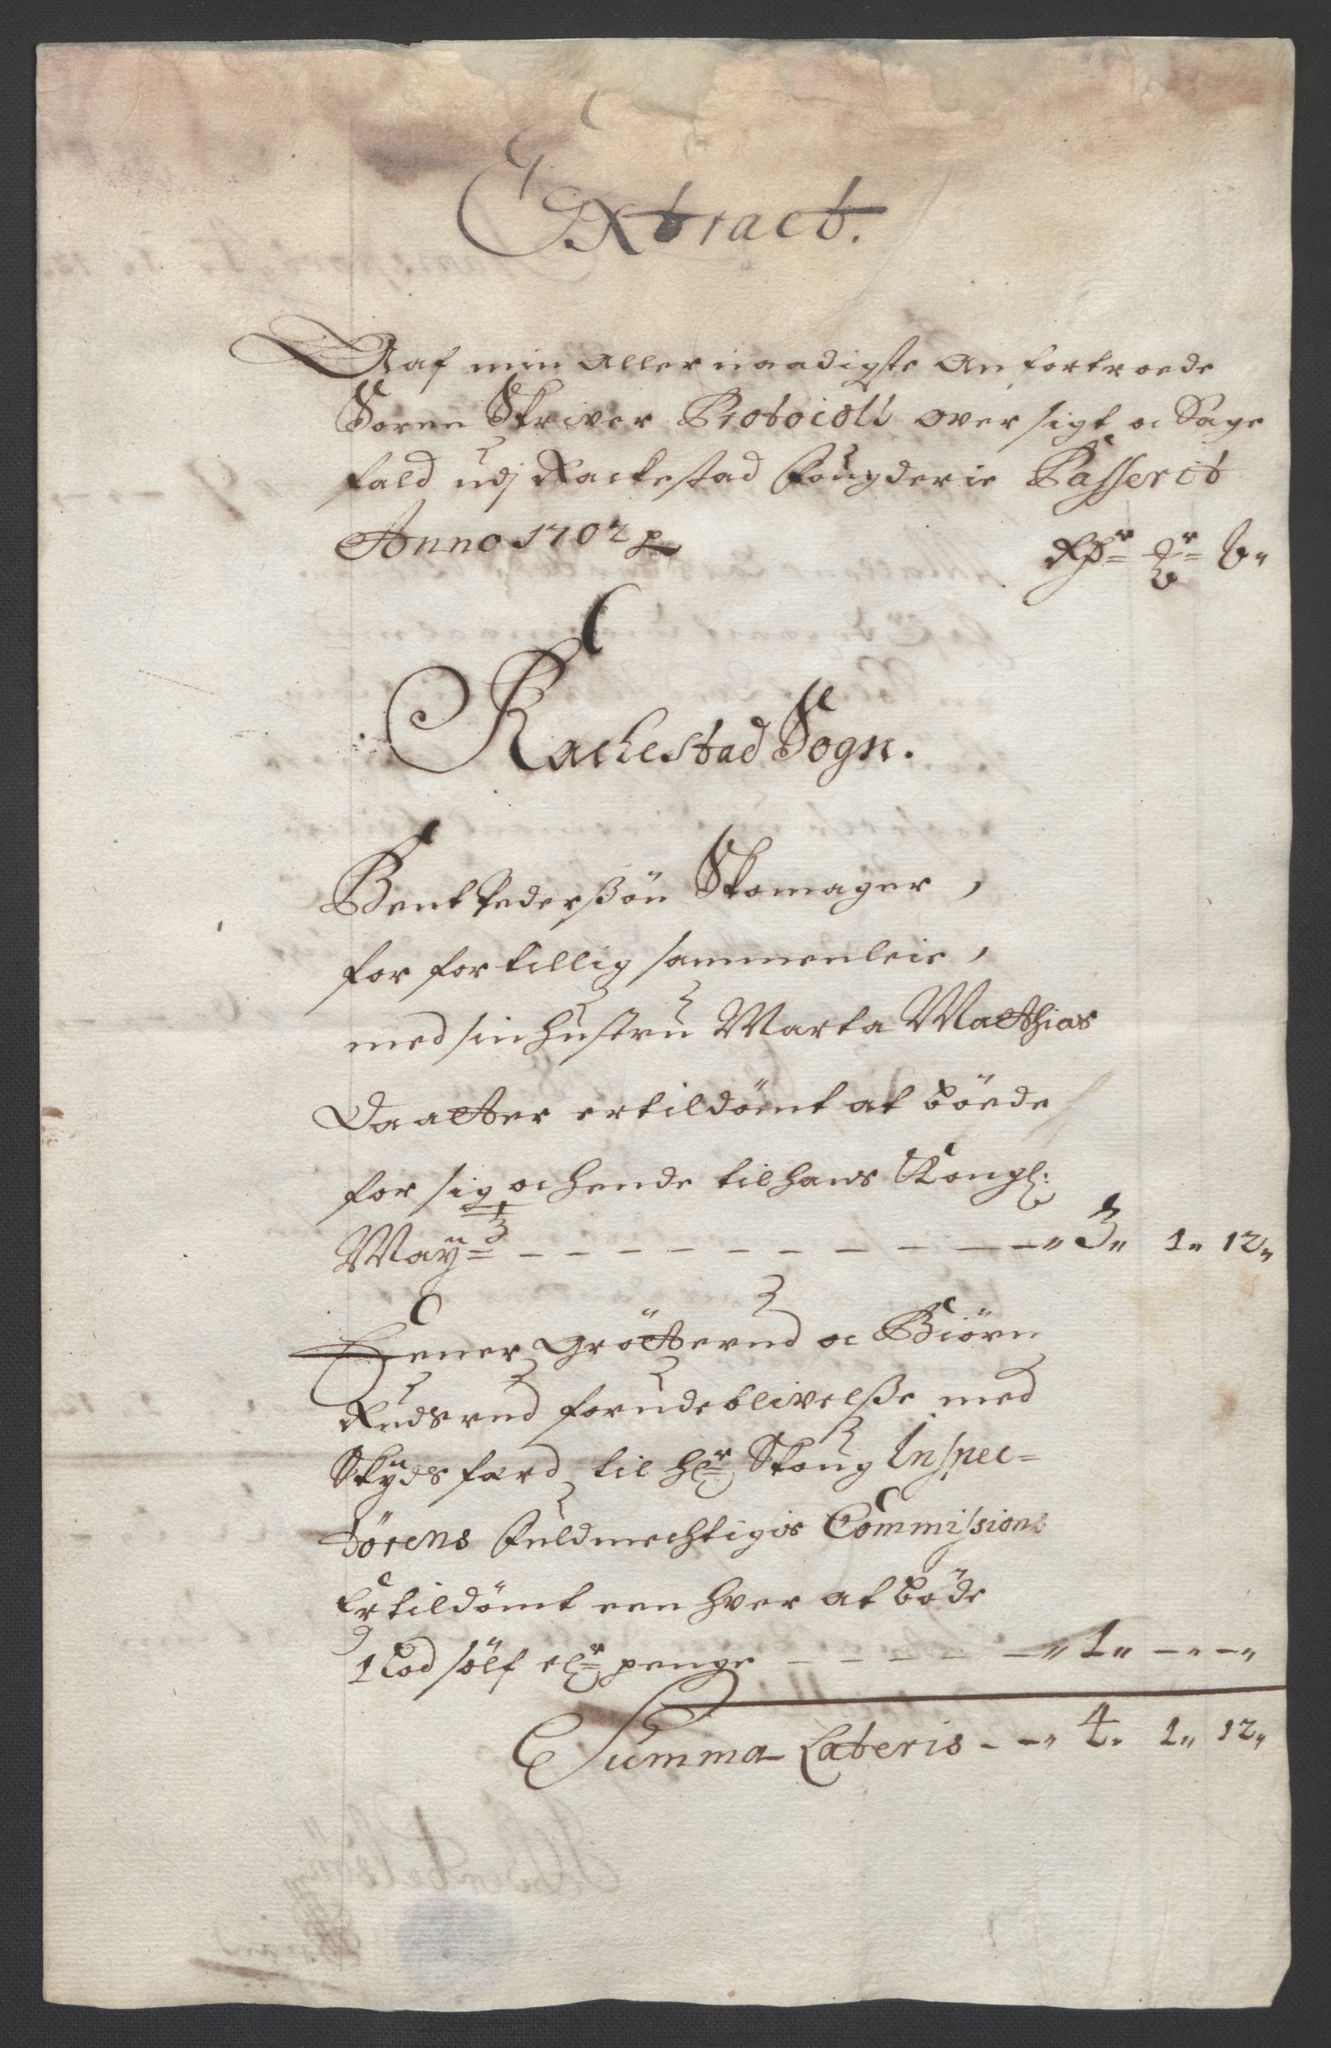 Extract.
Aaf min Allernaadigste Anfortroede
Soren Skriver Protocoll over sigt oc Sage
fald udj Rackestad Fougderie Passerit
Anno 1702 p
Rdr ort ß
Rackestad Sogn.
Bent Pederßön Skomager,
for fortillig sammenleie,
med sin hustru Marta Matthias
Daatter er tildömt at böede
for sig oc hende til hans Kongl:
Mayts — — — — — — — — — — — 3„ 1„ 12„
Hener Grötterud oc Biörn
Rudsrud for udeblivelße med
Skydsfærd til Hr Skoug Inspec=
törens Fuldmechtigis Commissions
Er tildömt een hver at böde
1 Lod sölf elr penge — — — — — „ 1„ — „ — „
Summa Lateris — — „ 4„ 1„ 12„